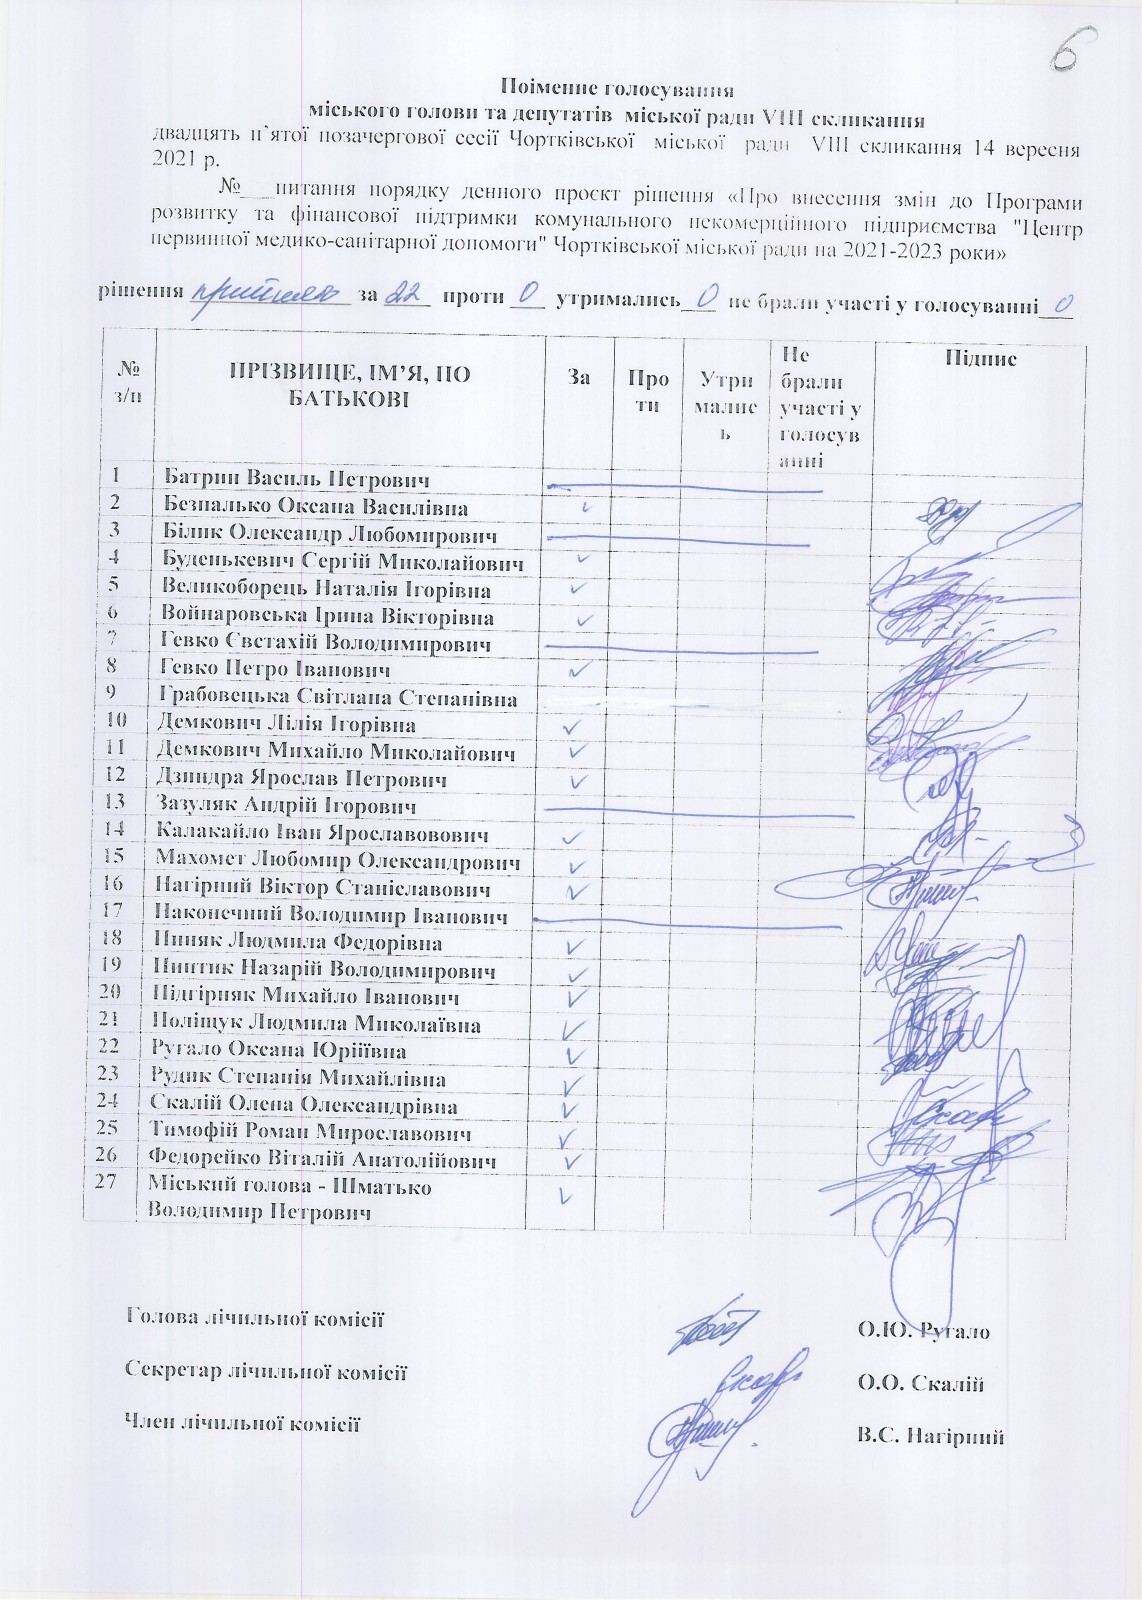 6
Поіменне голосування
міського голови та депутатів міської ради VIII скликання
двадцять п`ятої позачергової сесії Чортківської міської ради VIII скликання 14 вересня
2021 р.
№___питання порядку денного проєкт рішення «Про внесення змін до Програми
розвитку та фінансової підтримки комунального некомерційного підприємства "Центр
первинної медико-санітарної допомоги" Чортківської міської ради на 2021-2023 роки»
рішення прийнято за 22 проти 0 утримались 0 не брали участі у голосуванні 0
№ з/п ПРІЗВИЩЕ, ІМ’Я, ПО БАТЬКОВІ За Про ти Утри малис ь Не брали участі у голосув анні Підпис
1 Батрин Василь Петрович
2 Безпалько Оксана Василівна
3 Білик Олександр Любомирович
4 Буденькевич Сергій Миколайович
5 Великоборець Наталія Ігорівна
6 Войнаровська Ірина Вікторівна
7 Гевко Євстахій Володимирович
8 Гевко Петро Іванович
9 Грабовецька Світлана Степанівна
10 Демкович Лілія Ігорівна
11 Демкович Михайло Миколайович
12 Дзиндра Ярослав Петрович
13 Зазуляк Андрій Ігорович
14 Калакайло Іван Ярославовович
15 Махомет Любомир Олександрович
16 Нагірний Віктор Станіславович
17 Наконечний Володимир Іванович
18 Пиняк Людмила Федорівна
19 Пиптик Назарій Володимирович
20 Підгірняк Михайло Іванович
21 Поліщук Людмила Миколаївна
22 Ругало Оксана Юріїівна
23 Рудик Степанія Михайлівна
24 Скалій Олена Олександрівна
25 Тимофій Роман Мирославович
26 Федорейко Віталій Анатолійович
27 Міський голова - Шматько
Володимир Петрович
Голова лічильної комісії О.Ю. Ругало
Секретар лічильної комісії О.О. Скалій
Член лічильної комісії В.С. Нагірний